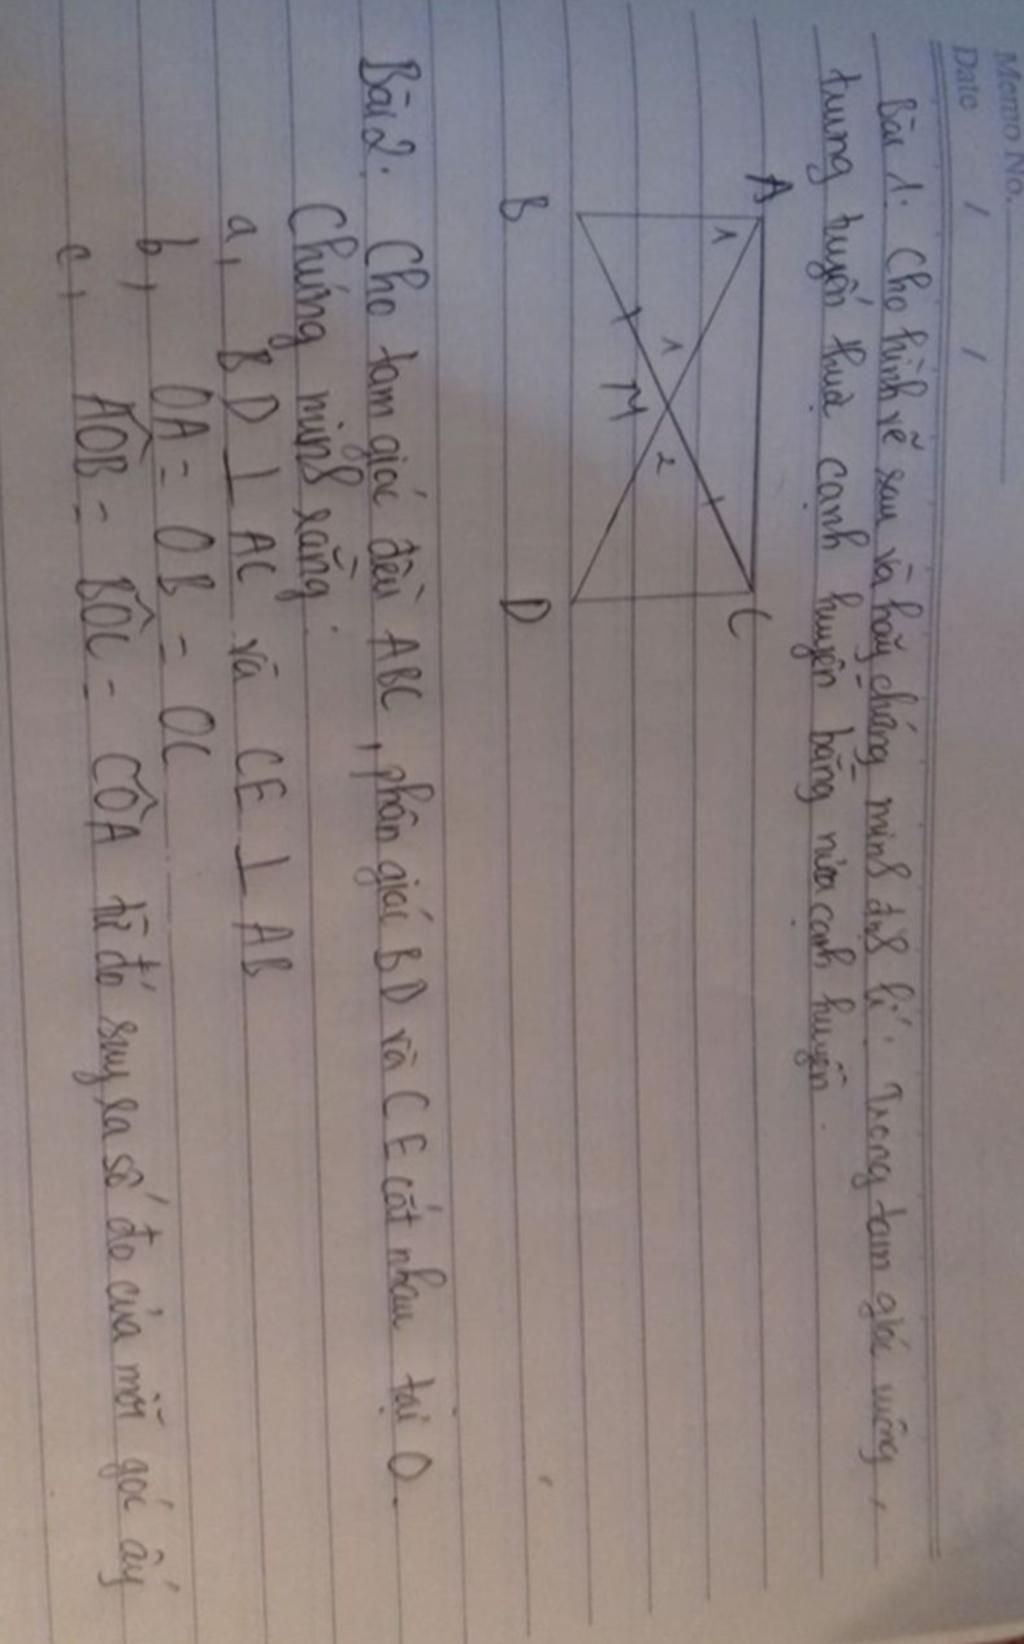 Memo No.
Date / /
Bài 1: Cho hình vẽ sau và hãy chứng minh định lí: Trong tam giác vuông,
trung tuyến thuộc cạnh huyền bằng nửa cạnh huyền.
A C
1
1 2
M
B D
Bài 2: Cho tam giác đều ABC, phân giác BD và CE cắt nhau tại O.
Chứng minh rằng:
a, BD ⊥ AC và CE ⊥ AB
b, OA = OB = OC
c, AÔB = BÔC = CÔA từ đó suy ra số đo của mỗi góc ấy